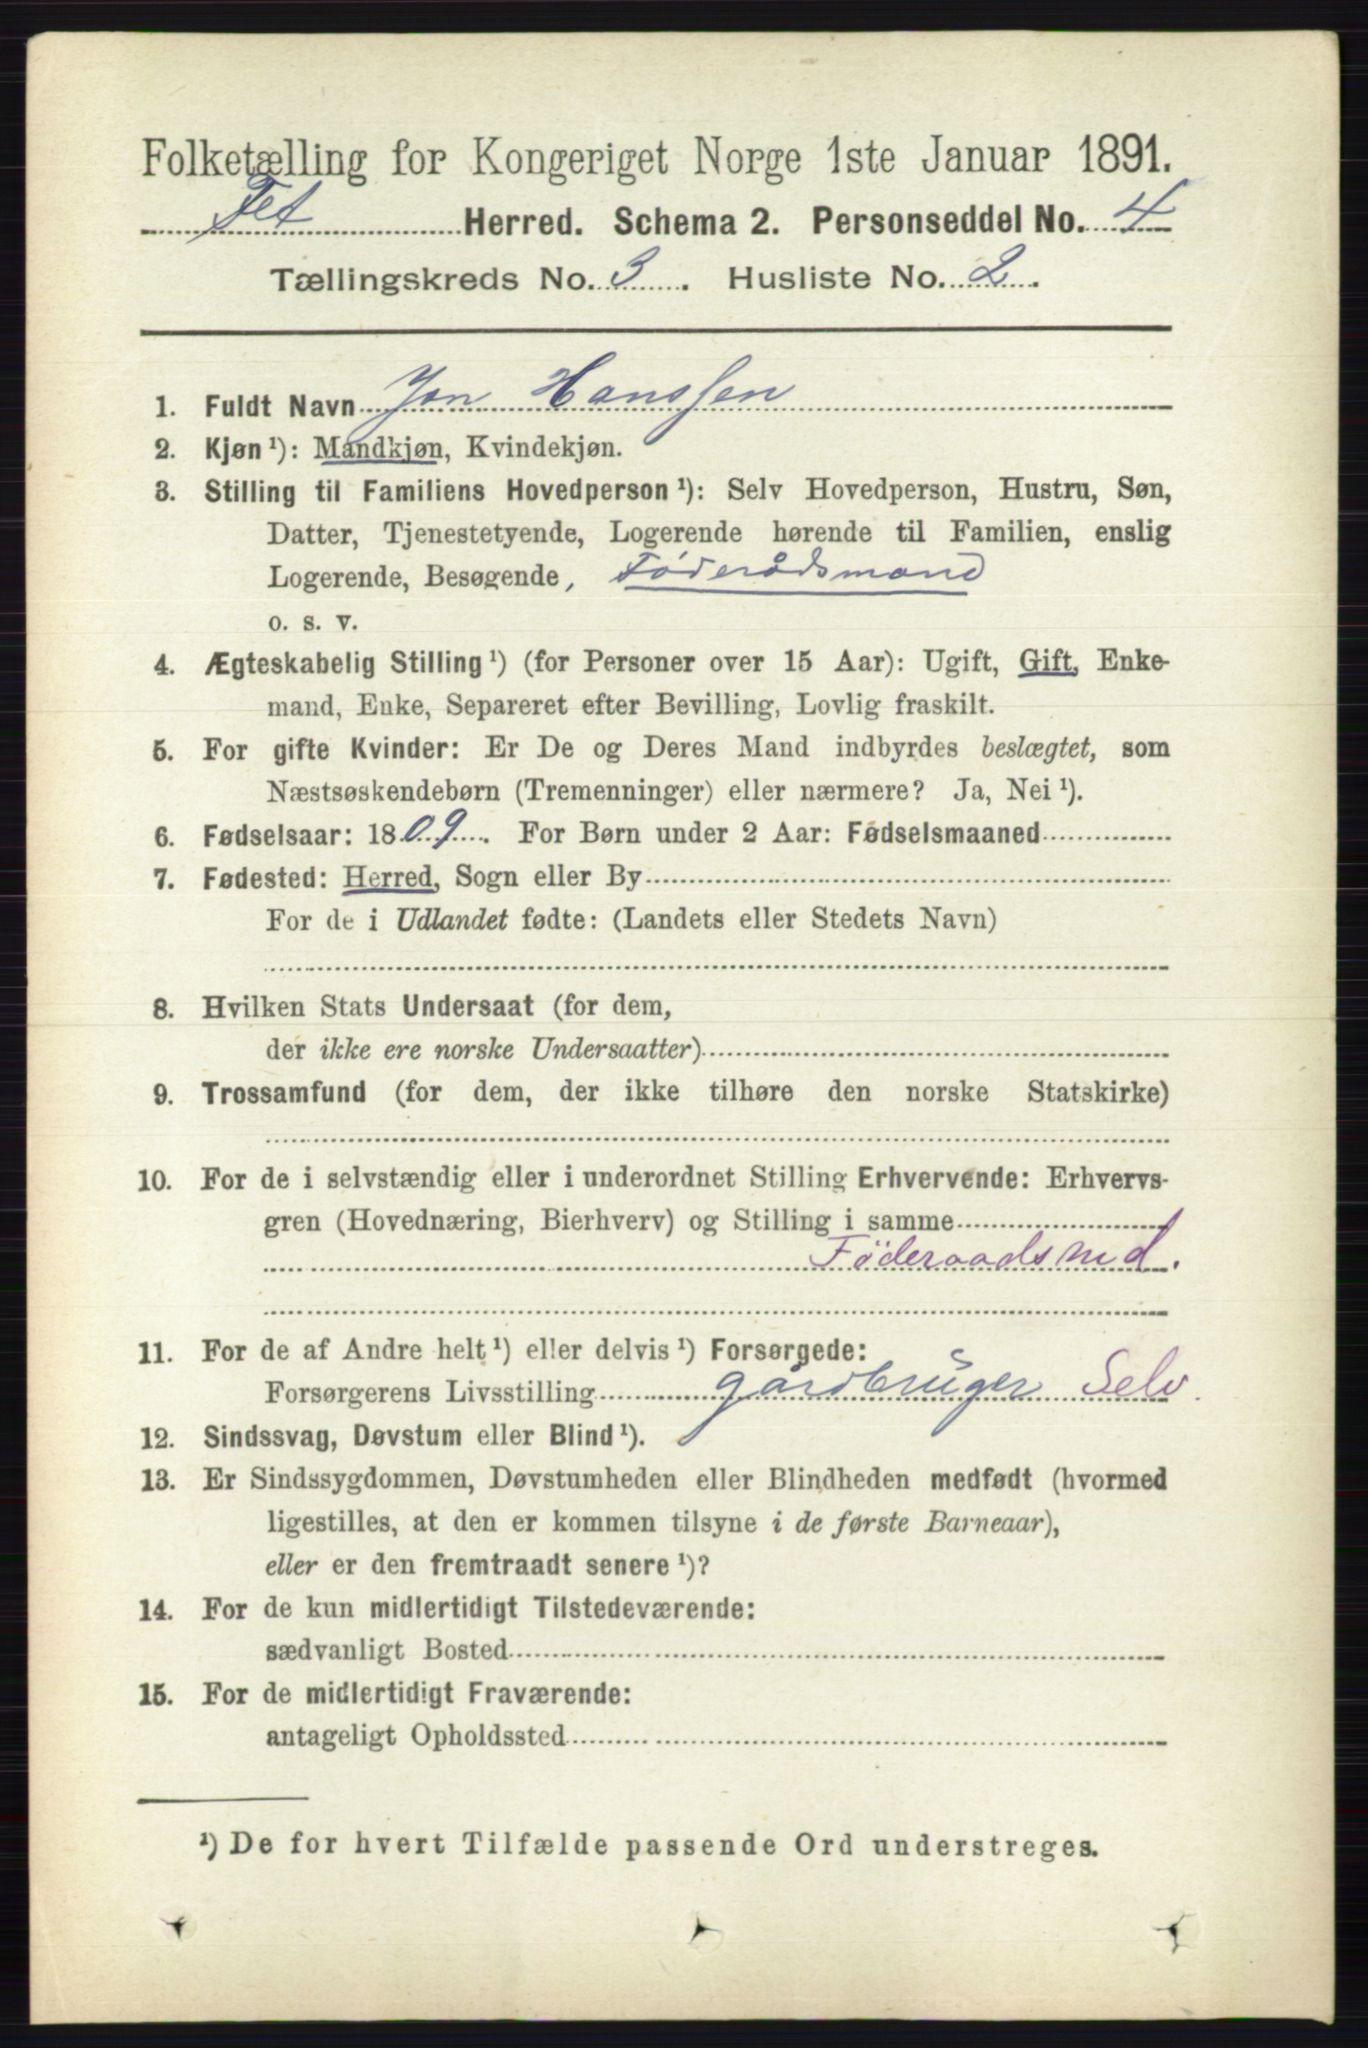 Folketælling for Kongeriget Norge 1ste Januar 1891.
Fet Herred. Schema 2. Personseddel No. 4
Tællingskreds No. 3. Husliste No. 2.
1. Fuldt Navn Jon Hanssen
2. Kjøn¹): Mandkjøn, Kvindekjøn.
3. Stilling til Familiens Hovedperson¹): Selv Hovedperson, Hustru, Søn,
Datter, Tjenestetyende, Logerende hørende til Familien, enslig
Logerende, Besøgende, Föderådsmand
o. s. v.
4. Ægteskabelig Stilling¹) (for Personer over 15 Aar): Ugift, Gift, Enke-
mand, Enke, Separeret efter Bevilling, Lovlig fraskilt.
5. For gifte Kvinder: Er De og Deres Mand indbyrdes beslægtet, som
Næstsøskendebørn (Tremenninger) eller nærmere? Ja, Nei¹).
6. Fødselsaar: 1809. For Børn under 2 Aar: Fødselsmaaned
7. Fødested: Herred, Sogn eller By
For de i Udlandet fødte: (Landets eller Stedets Navn)
8. Hvilken Stats Undersaat (for dem,
der ikke ere norske Undersaatter)
9. Trossamfund (for dem, der ikke tilhøre den norske Statskirke)
10. For de i selvstændig eller i underordnet Stilling Erhvervende: Erhvervs-
gren (Hovednæring, Bierhverv) og Stilling i samme
Föderaadsmd.
11. For de af Andre helt¹) eller delvis¹) Forsørgede:
Forsørgerens Livsstilling gårdbruger Selv.
12. Sindssvag, Døvstum eller Blind¹).
13. Er Sindssygdommen, Døvstumheden eller Blindheden medfødt (hvormed
ligestilles, at den er kommen tilsyne i de første Barneaar),
eller er den fremtraadt senere¹)?
14. For de kun midlertidigt Tilstedeværende:
sædvanligt Bosted
15. For de midlertidigt Fraværende:
antageligt Opholdssted
¹) De for hvert Tilfælde passende Ord understreges.